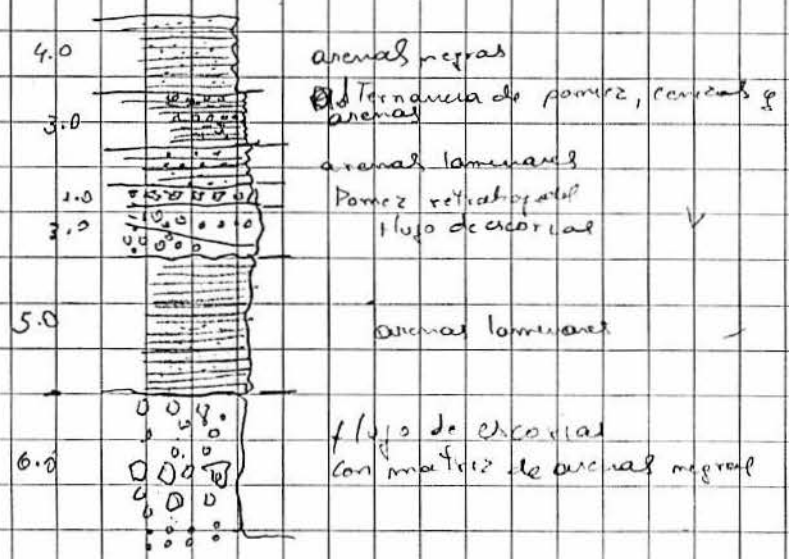 4.0 arenas negras
alternancia de pomez, cenizas y
3.0 arenas
arenas laminares
1.0 Pomez retrabajada
3.0 flujo de escorias
5.0 arenas laminares
flujo de escorias
6.0 con matriz de arenas negras